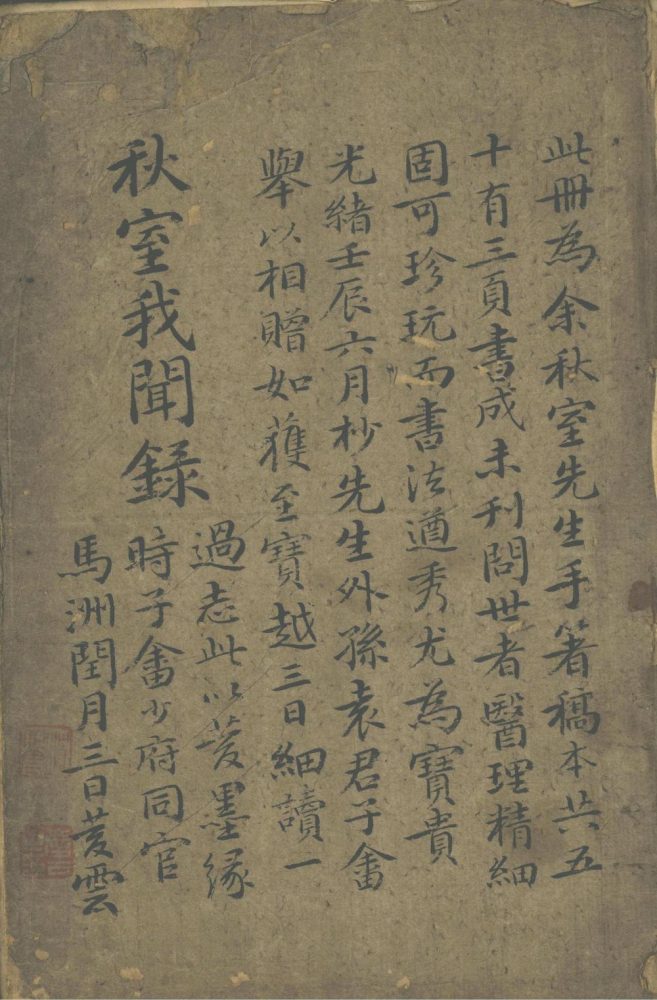 此冊為余秋室先生手著稿本共五
十有三頁書成未刊問世者醫理精細
固可珍玩而書法遒秀尤為寶貴
光緒壬辰六月杪先生外孫袁君子畬
舉以相贈如獲至寶越三日細讀一
過志此以誌墨緣
秋室我聞錄
時子畬少府同官
馬洲閏月三日雲